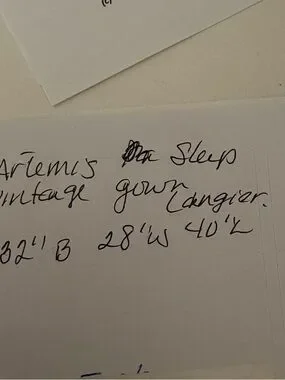 Artemis Sleep
vintage gown Langier.
32" B 28" W 40" L